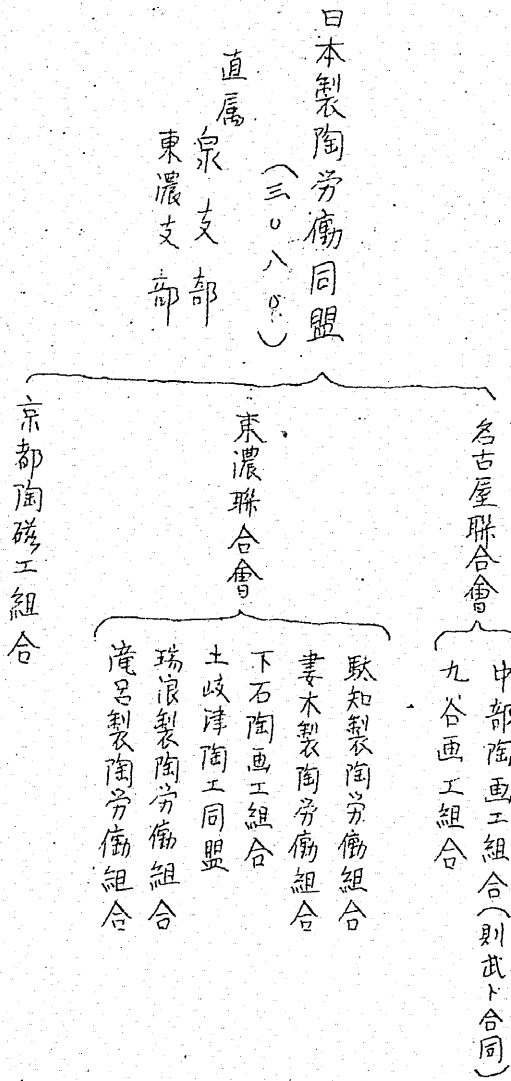 日本製陶労働同盟
(三〇八〇)
直属
泉支部
東濃支部
名古屋聯合會
中部陶画工組合(則武ト合同)
九谷画工組合
東濃聯合會
駄知製陶労働組合
妻木製陶労働組合
下石陶画工組合
土岐津陶工同盟
瑞浪製陶労働組合
滝呂製陶労働組合
京都陶磁工組合